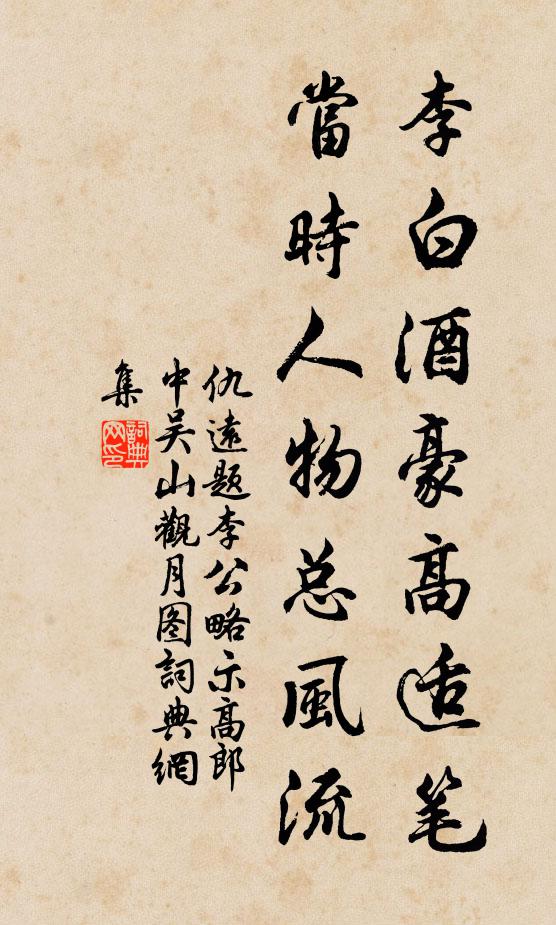 李白酒豪高适笔
當時人物总風流
仇遠题李公略示高郎
中吴山觀月图詞典網
集
詞典
网印